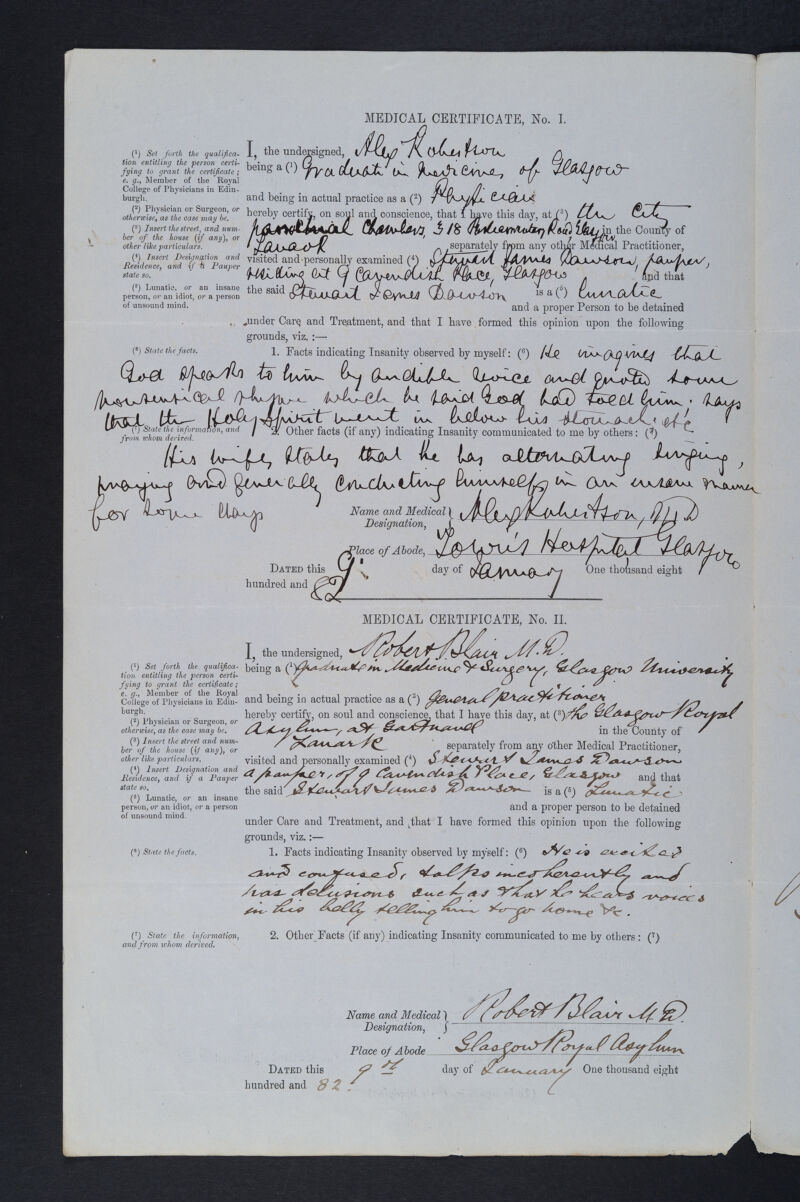 MEDICAL CERTIFICATE, No. I.
(1) Set forth the qualifica-
tion entitling the person certi-
fying to grant the certificate;
e. g., Member of the Royal
College of Physicians in Edin-
burgh.
(2) Physician or Surgeon, or
otherwise, as the case may be.
(3) Insert the street, and num-
ber of the house (if any), or
other like particulars.
(4) Insert Designation and
Residence, and if a Pauper
state so.
(5) Lunatic, or an insane
person, or an idiot, or a person
of unsound mind.
I, the undersigned, Alex Robertson
being a (1) Graduate in Medicine, of Glasgow
and being in actual practice as a (2) Physician
hereby certify, on soul and conscience, that I have this day, at (3) the City
parochial Chambers, 318 Parliamentary Road Glasgow in the County of
Lanark separately from any other Medical Practitioner,
visited and personally examined (4) Stewart James Dawson, pauper,
residing at 9 Cavendish Place, Glasgow and that
the said Stewart James Dawson is a (5) lunatic
and a proper Person to be detained
under Care and Treatment, and that I have formed this opinion upon the following
grounds, viz. :—
(6) State the facts.
1. Facts indicating Insanity observed by myself: (6) He imagines that
God speaks to him by audible voice and quoted some
nonsensical rhyme which he said God had told him; says
that the Holy Spirit went in below his stomach etc
(7) State the information, and
from whom derived.
2. Other facts (if any) indicating Insanity communicated to me by others: (7)
His wife states that he has alternating singing,
praying and generally conducting himself in an insane manner
for some days
Name and Medical Designation, } Alex Robertson, M D
Place of Abode, Town's Hospital, Glasgow
DATED this 9 day of January One thousand eight
hundred and 82
MEDICAL CERTIFICATE, No. II.
(1) Set forth the qualifica-
tion entitling the person certi-
fying to grant the certificate;
e. g., Member of the Royal
College of Physicians in Edin-
burgh.
(2) Physician or Surgeon, or
otherwise, as the case may be.
(3) Insert the street and num-
ber of the house (if any), or
other like particulars.
(4) Insert Designation and
Residence, and if a Pauper
state so.
(5) Lunatic, or an insane
person, or an idiot, or a person
of unsound mind.
I, the undersigned, Robert Blair M.D.
being a (1) Graduate in Medicine & Surgery, Glasgow University
and being in actual practice as a (2) general practitioner
hereby certify, on soul and conscience, that I have this day, at (3) the Glasgow Royal
Asylum, at Gartnavel in the County of
Lanark separately from any other Medical Practitioner,
visited and personally examined (4) Stewart James Dawson
a pauper, of 9 Cavendish Place, Glasgow and that
the said Stewart James Dawson is a (5) Lunatic
and a proper person to be detained
under Care and Treatment, and that I have formed this opinion upon the following
grounds, viz. :—
(6) State the facts.
1. Facts indicating Insanity observed by myself: (6) He is excited
and confused, talks incoherently and
has delusions such as that he hears voices
in his belly telling him to go home &c.
(7) State the information,
and from whom derived.
2. Other Facts (if any) indicating Insanity communicated to me by others: (7)
Name and Medical Designation, } Robert Blair M.D.
Place of Abode Glasgow Royal Asylum
DATED this 9th day of January One thousand eight
hundred and 82.